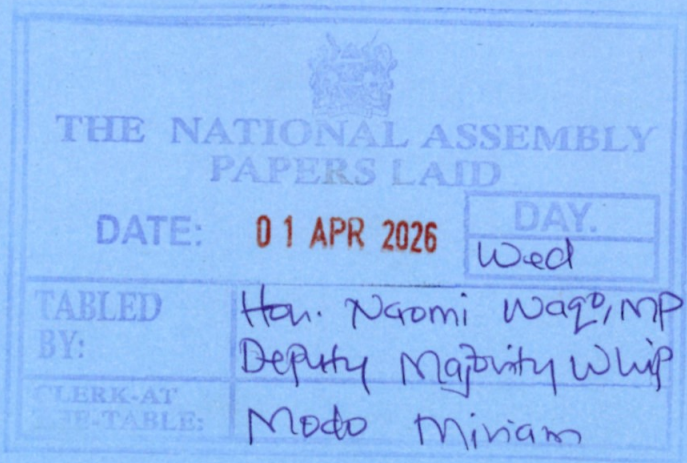 THE NATIONAL ASSEMBLY
PAPERS LAID
DATE: 01 APR 2026
DAY.
Wed
TABLED BY: Hon. Naomi Waqo, MP
Deputy Majority Whip
CLERK-AT THE-TABLE: Modo Miriam